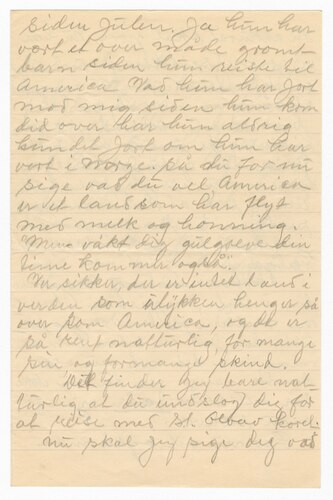 siden Julen, Ja hun har
vært et over måde gromt
barn siden hun reiste til
America Vad hun har Jort
mod mig siden hun kom
did over har hun aldrig
kundet Jort om hun har
vort i Norge. så du for nu
sige vad du vel America
er et land som har flyt
med melk og honning.
"Men vakt dig din
time kommer også".
Vær sikker, der er intet Land i
verden som ulykken henger så
over som America, og de er
så rent naturlig, for mange
og formange skind.
Det finder Jeg bare nat-
urlig at du undslog dig for
at reise med St. Olvav Koret.
nu skal Jeg sige dig vad